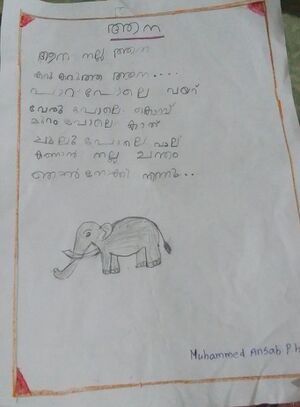 ആന
ആന നല്ല ആന
കറു കറുത്ത ആന....
പാറ പോലെ വയറ്
വേരു പോലെ കൊമ്പ്
മുറം പോലെ കാത്
ചൂലു പോലെ വാല്
കാണാൻ നല്ല ചന്തം
ഞാൻ നോക്കി നിന്നു..
Muhammed Ansab P.h